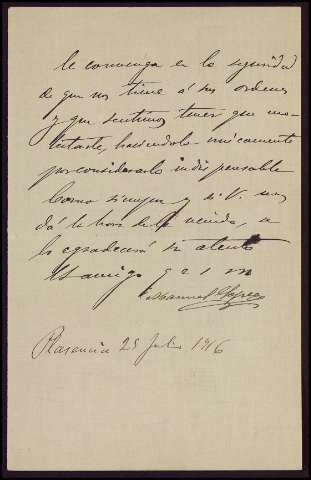 le convenga en la seguridad
de que nos tiene á sus ordenes
y que sentimos tener que mo-
lestarle, haciendolo unicamente
por considerarlo indispensable
Como siempre y si V. nos
dá la hora de la venida,
le agradecerá su atento
amigo q e s m
Manuel
Plasencia 25 Julio 1916